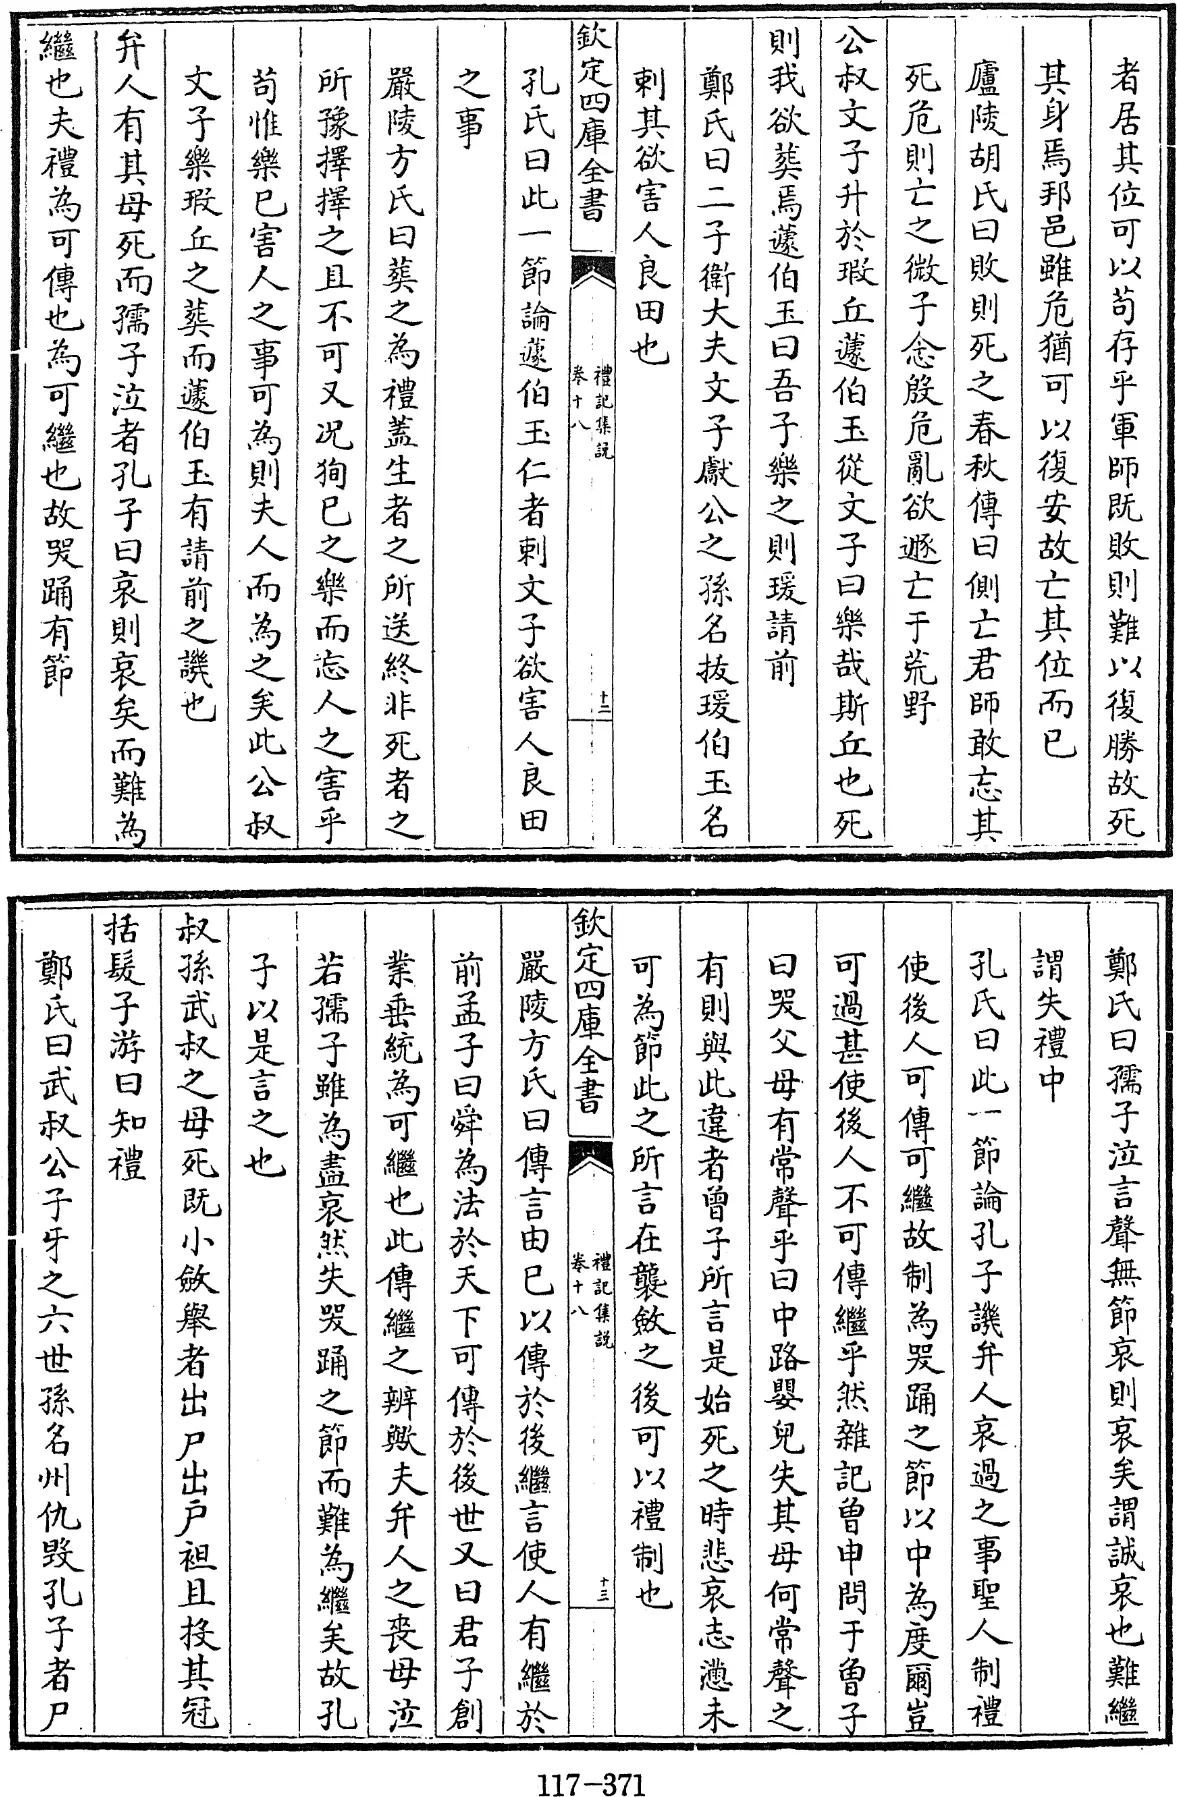 者居其位可以苟存乎軍師既敗則難以復勝故死
其身焉邦邑雖危猶可以復安故亡其位而已
廬陵胡氏曰敗則死之春秋傳曰側亡君師敢忘其
死危則亡之微子念殷危亂欲遯亡于荒野
公叔文子升於瑕丘蘧伯玉從文子曰樂哉斯丘也死
則我欲葬焉蘧伯玉曰吾子樂之則瑗請前
鄭氏曰二子衛大夫文子獻公之孫名拔瑗伯玉名
刺其欲害人良田也
欽定四庫全書
禮記集説
卷十八
十二
孔氏曰此一節論蘧伯玉仁者刺文子欲害人良田
之事
嚴陵方氏曰葬之為禮蓋生者之所送終非死者之
所豫擇擇之且不可又况狥已之樂而忘人之害乎
苟惟樂已害人之事可為則夫人而為之矣此公叔
文子樂瑕丘之葬而蘧伯玉有請前之譏也
弁人有其母死而孺子泣者孔子曰哀則哀矣而難為
繼也夫禮為可傳也為可繼也故哭踊有節
鄭氏曰孺子泣言聲無節哀則哀矣謂誠哀也難繼
謂失禮中
孔氏曰此一節論孔子譏弁人哀過之事聖人制禮
使後人可傳可繼故制為哭踊之節以中為度爾豈
可過甚使後人不可傳繼乎然雜記曽申問于曽子
曰哭父母有常聲乎曰中路嬰兒失其母何常聲之
有則與此違者曽子所言是始死之時悲哀志懣未
可為節此之所言在襲斂之後可以禮制也
欽定四庫全書
禮記集説
卷十八
十三
嚴陵方氏曰傳言由已以傳於後繼言使人有繼於
前孟子曰舜為法於天下可傳於後世又曰君子創
業垂統為可繼也此傳繼之辨歟夫弁人之喪母泣
若孺子雖為盡哀然失哭踊之節而難為繼矣故孔
子以是言之也
叔孫武叔之母死既小斂舉者出尸出戸袒且投其冠
括髮子游曰知禮
鄭氏曰武叔公子牙之六世孫名州仇毁孔子者尸
117-371